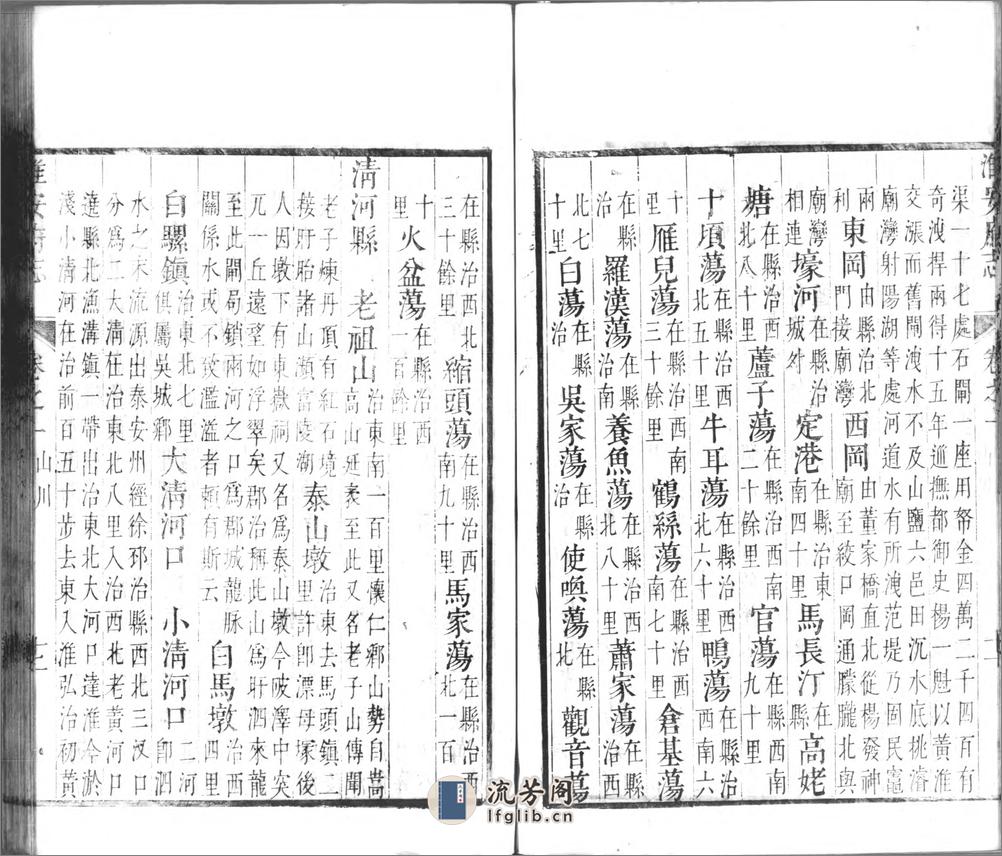 渠一十七處石閘一座用帑金四萬二千四百有
奇洩捍兩得十五年巡撫都御史楊一魁以黃淮
交漲而舊閘洩水不及山鹽六邑田沉水底挑濬
廟灣射陽湖等處河道水有所洩范堤乃固民竈
兩利 東岡 由縣治北門接廟灣 西岡 由董家橋直北從楊發神廟至絞口岡通朦朧北與
廟灣相連 壕河 在縣治城外 定港 在縣治東南四十里 馬長汀 在縣 高姥
塘 在縣治西北八十里 蘆子蕩 在縣治西南二十餘里 官蕩 在縣治 九十里
十頃蕩 在縣治西北五十里 牛耳蕩 在縣治西北六十里 鴨蕩 在縣治西南六
十里 雁兒蕩 在縣治西南三十里 鶴絲蕩 在縣治西南七十里 倉基蕩
在縣治南 羅漢蕩 在縣治南 養魚蕩 在縣治西北八十里 蕭家蕩 在縣治西
北七十里 白蕩 在縣治 吳家蕩 在縣治 使喚蕩 在縣北 觀音蕩
在縣治西北三十餘里 縮頭蕩 在縣治西南九十里 馬家蕩 在縣治西北一百
十里 火盆蕩 在縣治西一百餘里
清河縣 老祖山 治東南一百里懷仁鄉山勢自嵩高山延袤至此又名老子山傳聞
老子煉丹頂有紅石境接盱胎諸山瀕富陵湖 泰山墩 治東去馬頭鎮二里許郎漂母塚後
人因墩下有東嶽祠又名為泰山墩今陂澤中突
兀一丘遠望如浮翠矣郡治稱此山為盱泗來龍
至此關局鎖兩河之口為郡城龍脈
關係水或不致濫溢者賴有斯云 白馬墩 治西四里
白騾鎮 治東北七里俱屬吳城鄉 大清河口 小清河口 二河即泗
水之末流源出泰安州經徐邳治縣西北三汊口
分為二大清在治東北八里入治西北老黃河口
達縣北漁溝鎮一帶出治東北大河口達淮今於
淺小清河在治前百五十步去東入淮弘治初黃
淮安府志 卷之一 山川